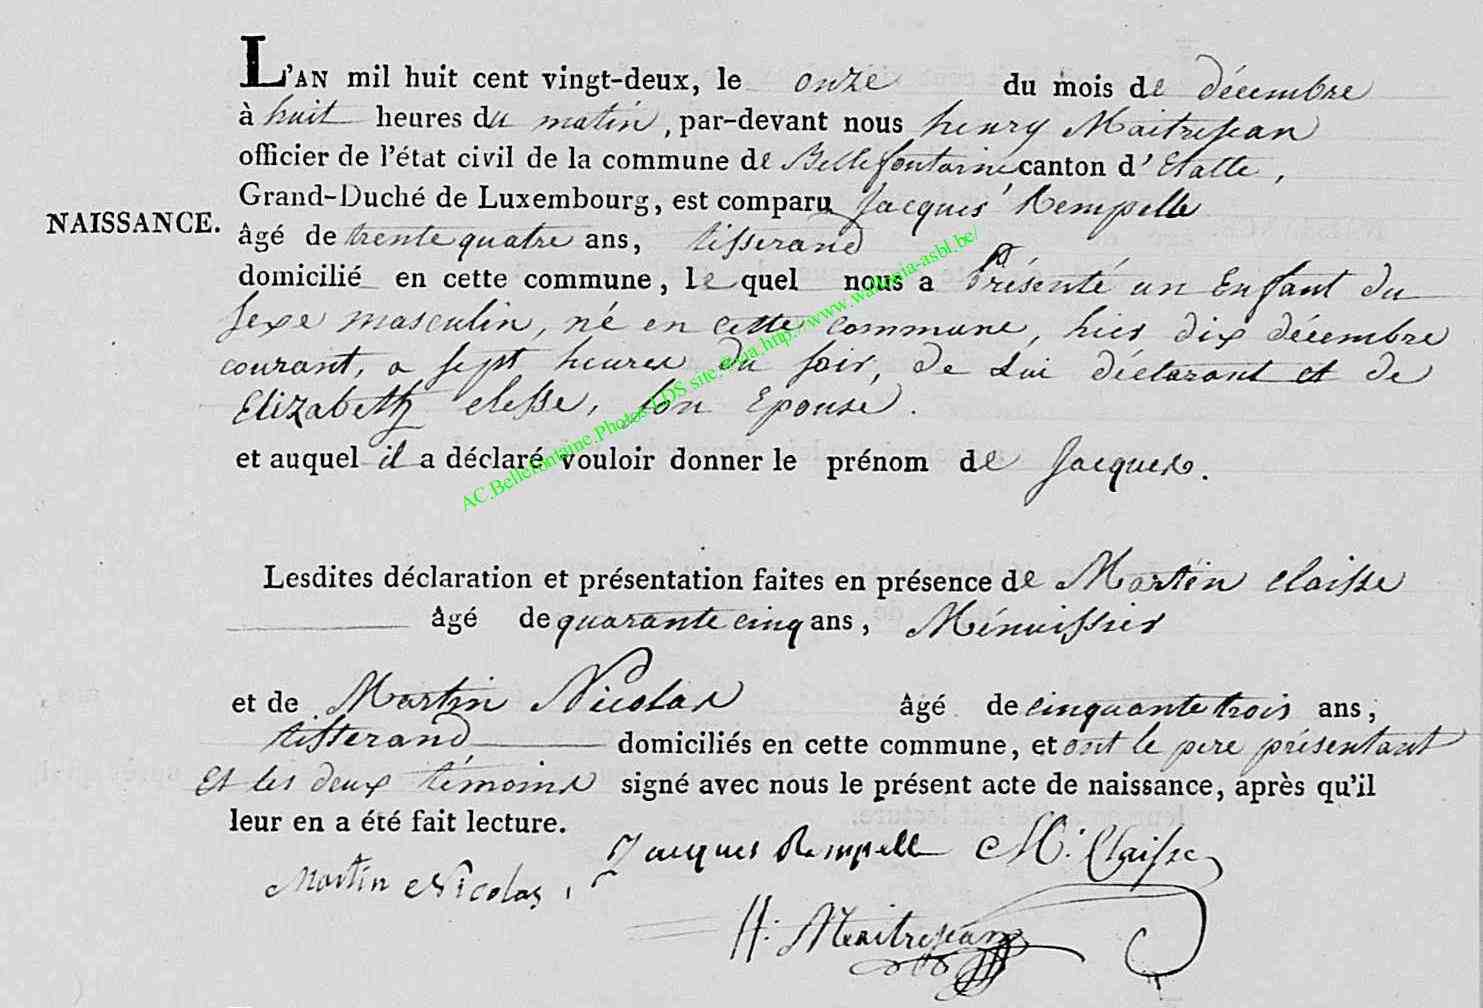 L'AN mil huit cent vingt-deux, le onze du mois de décembre
à huit heures du matin, par-devant nous henry Maitrejean
officier de l'état civil de la commune de Bellefontaine canton d'Etalle,
Grand-Duché de Luxembourg, est comparu Jacques Rempelle
NAISSANCE.
âgé de trente quatre ans, tisserand
domicilié en cette commune, le quel nous a Présenté un Enfant du
sexe masculin, né en cette commune, hier dix décembre
courant, a sept heures du soir, de Lui déclarant et de
Elizabeth clesse, son Epouse.
et auquel il a déclaré vouloir donner le prénom de Jacques.
AC.Bellefontaine.Photos LDS site Cegia.http://www.wallonia-asbl.be/
Lesdites déclaration et présentation faites en présence de Martin claisse
âgé de quarante cinq ans, Ménuissier
et de Martin Nicolas âgé de cinquante trois ans,
tisserand domiciliés en cette commune, et ont le pere présentant
Et les deux témoins signé avec nous le présent acte de naissance, après qu'il
leur en a été fait lecture.
Jacques Rempelle M. Claisse
Martin Nicolas,
H. Maitrejean